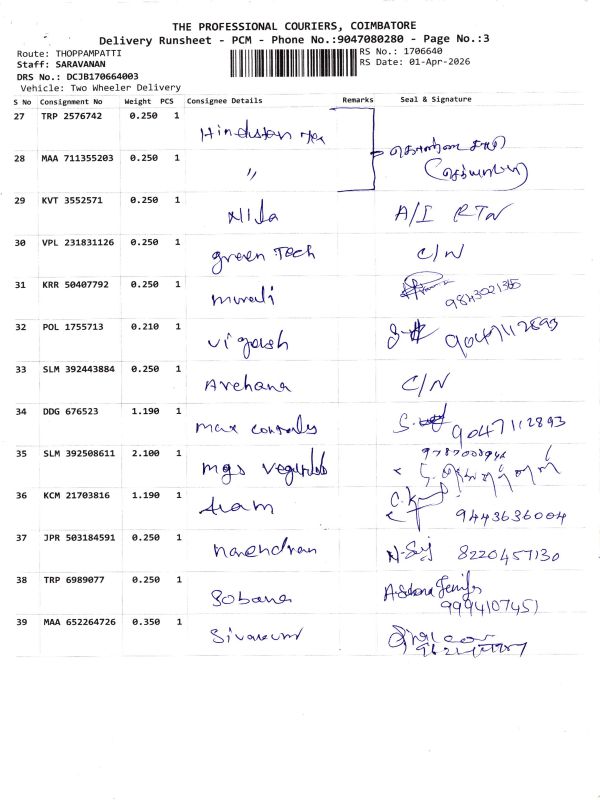 THE PROFESSIONAL COURIERS, COIMBATORE
Delivery Runsheet - PCM - Phone No.:9047080280 - Page No.:3
Route: THOPPAMPATTI RS No.: 1706640
Staff: SARAVANAN RS Date: 01-Apr-2026
DRS No.: DCJB170664003
Vehicle: Two Wheeler Delivery
S No Consignment No Weight PCS Consignee Details Remarks Seal & Signature
27 TRP 2576742 0.250 1 Hindustan
28 MAA 711355203 0.250 1 "
29 KVT 3552571 0.250 1 Nila A/I RTN
30 VPL 231831126 0.250 1 green Tech C/N
31 KRR 50407792 0.250 1 murali
32 POL 1755713 0.210 1 9047112893
33 SLM 392443884 0.250 1 Archana C/N
34 DDG 676523 1.190 1 max 9047112893
35 SLM 392508611 2.100 1 mgs
36 KCM 21703816 1.190 1 9443636004
37 JPR 503184591 0.250 1 narendran 8220457130
38 TRP 6989077 0.250 1 Sobana 9994107451
39 MAA 652264726 0.350 1